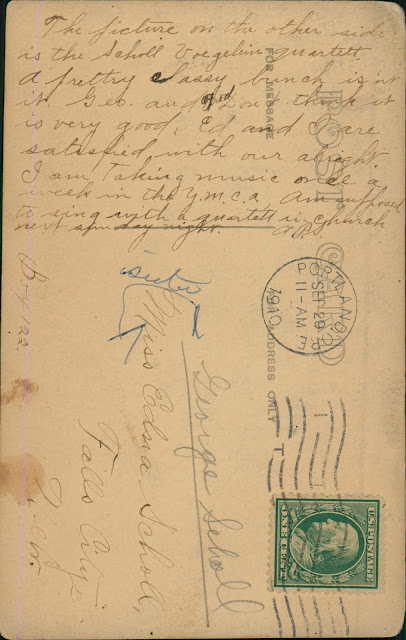 The picture on the other side
is the Scholl Voegelein quartett
a prettty classy bunch isnt
it. Geo. and Fred Don't think it
is very good, Ed and I are
satisfied with our alright
I am Taking music once a
week in the Y.M.C.A. Am supposed
to sing with a quartett in church
next sunday night. A.P.S.
FOR MESSAGE
POST CARD
FOR ADDRESS ONLY
PORTLAND, OR
SEP 29
11-AM
1910
sister
George Scholl
Miss Edna Scholl,
Falls City
Box 122.
U.S. POSTAGE
ONE CENT